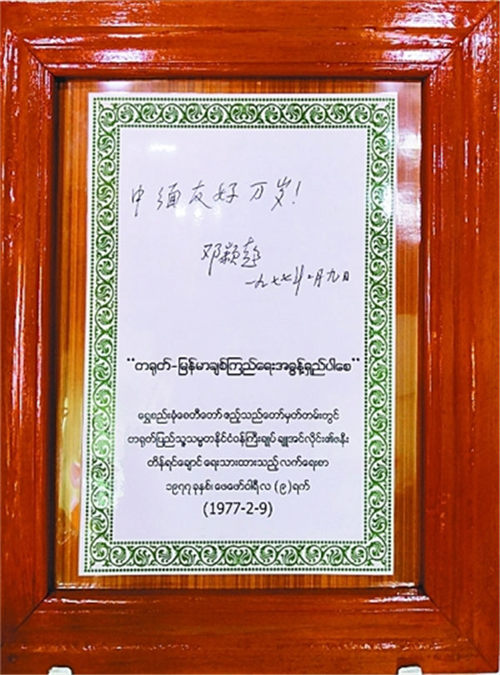 中缅友好万岁!
邓颖超
一九七七年二月九日
"တရုတ်-မြန်မာချစ်ကြည်ရေးအခွန့်ရှည်ပါစေ"
ရွှေစည်းခုံစေတီတော် ဧည့်သည်တော်မှတ်တမ်းတွင်
တရုတ်ပြည်သူ့သမ္မတနိုင်ငံဝန်ကြီးချုပ် ချူအင်လိုင်း၏ဇနီး
တိန်ရင်ချောင် ရေးသားထားသည့် လက်ရေးစာ
၁၉၇၇ ခုနှစ်၊ ဖေဖော်ဝါရီလ (၉) ရက်
(1977-2-9)